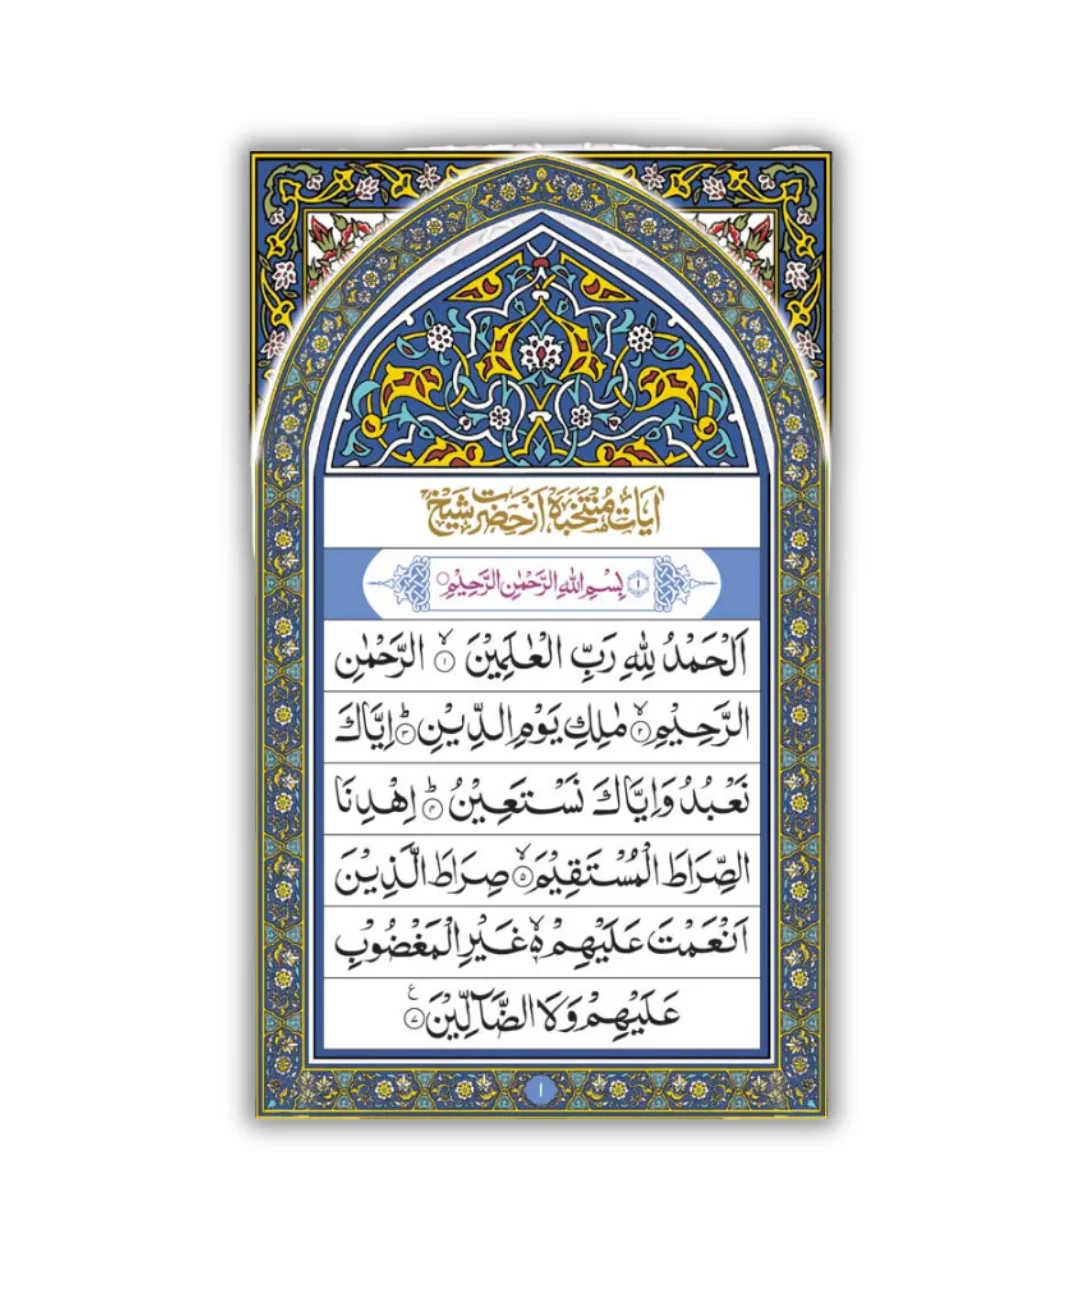 اٰیَاتٌ مُنْتَخَبَةٌ اَزْ حَضْرَتِ شَیْخْ
۱ بِسْمِ اللهِ الرَّحْمٰنِ الرَّحِيْمِ
اَلْحَمْدُ لِلّٰهِ رَبِّ الْعٰلَمِيْنَ ۙ﴿۱﴾ الرَّحْمٰنِ
الرَّحِيْمِ ۙ﴿۲﴾ مٰلِكِ يَوْمِ الدِّيْنِ ؕ﴿۳﴾ اِيَّاكَ
نَعْبُدُ وَاِيَّاكَ نَسْتَعِيْنُ ؕ﴿۴﴾ اِهْدِنَا
الصِّرَاطَ الْمُسْتَقِيْمَ ۙ﴿۵﴾ صِرَاطَ الَّذِيْنَ
اَنْعَمْتَ عَلَيْهِمْ ۙ۬ۦ غَيْرِ الْمَغْضُوْبِ
عَلَيْهِمْ وَلَا الضَّآلِّيْنَ ﴿۷﴾ ع
۱